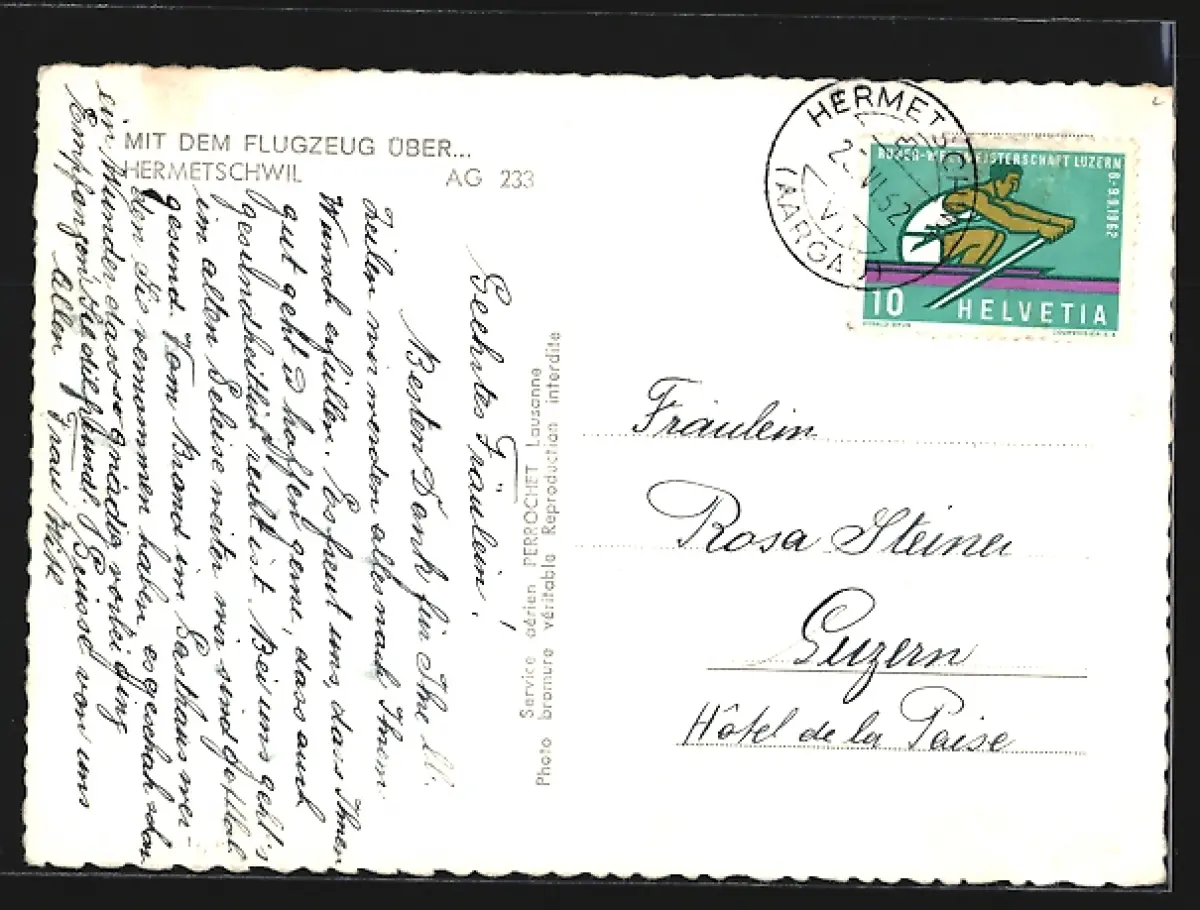 MIT DEM FLUGZEUG ÜBER...
HERMETSCHWIL AG 233
Geehrtes Fräulein!
Besten Dank für Ihre ll.
Zeilen wir werden alles nach Ihrem
Wunsch erfüllen. Es freut uns, dass Ihnen
gut geht & hoffen gerne, dass auch
gesundheitlich recht ist. Bei uns geht's
im alten Geleise weiter wir sind gottlob
gesund. Vom Brand im Gasthaus wer-
den Sie vernommen haben, es geschah schon
ein Wunder dass so gnädig vorbei ging
Empfangen Sie die freundl. Grüsse von uns
Allen Frau
Service aérien PERROCHET Lausanne
Photo bromure véritable Reproduction interdite
HERMETSCHWIL
VI.62
(AARGAU)
RUDER-WELTMEISTERSCHAFT LUZERN
6-9.9.1962
10 HELVETIA
COURVOISIER S.A.
Fräulein
Rosa Steiner
Luzern
Hôtel de la Paise